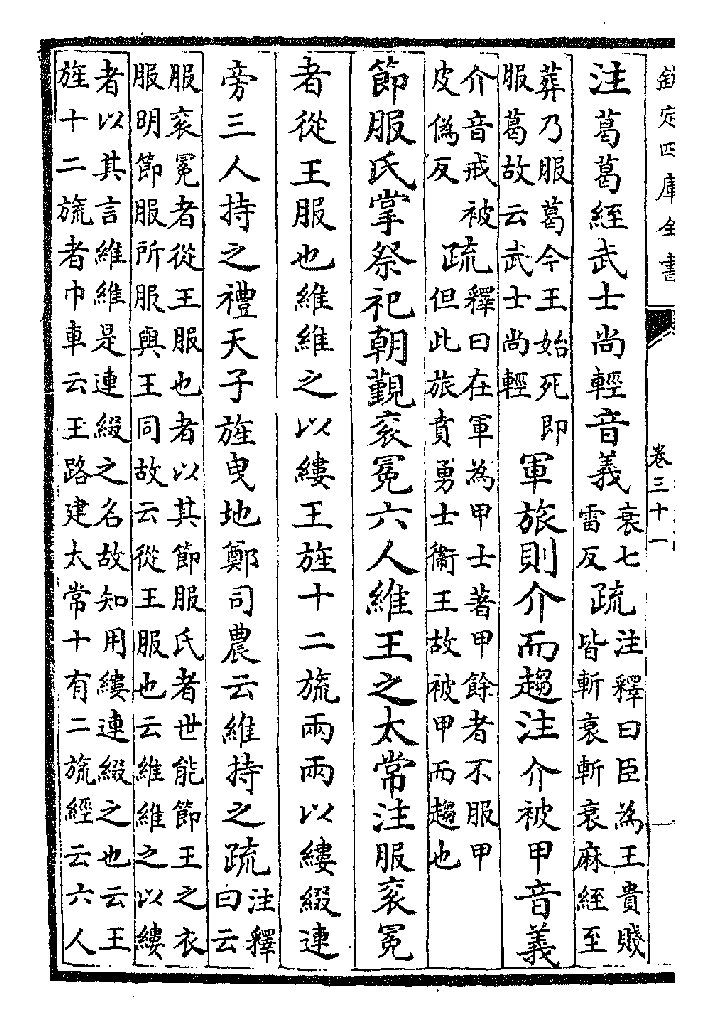 欽定四庫全書
卷三十一
注葛葛絰武士尚輕音義衰七雷反疏注釋曰臣為王貴賤皆斬衰斬衰麻絰至
葬乃服葛今王始死即服葛故云武士尚輕軍旅則介而趨注介被甲音義
介音戒被皮偽反疏釋曰在軍為甲士著甲餘者不服甲但此旅賁勇士衛王故被甲而趨也
節服氏掌祭祀朝覲衮冕六人維王之太常注服衮冕
者從王服也維維之以縷王旌十二旒兩兩以縷綴連
旁三人持之禮天子旌曳地鄭司農云維持之疏注釋曰云
服衮冕者從王服也者以其節服氏者世能節王之衣服明節服所服與王同故云從王服也云維維之以縷
者以其言維維是連綴之名故知用縷連綴之也云王旌十二旒者巾車云王路建太常十有二旒經云六人